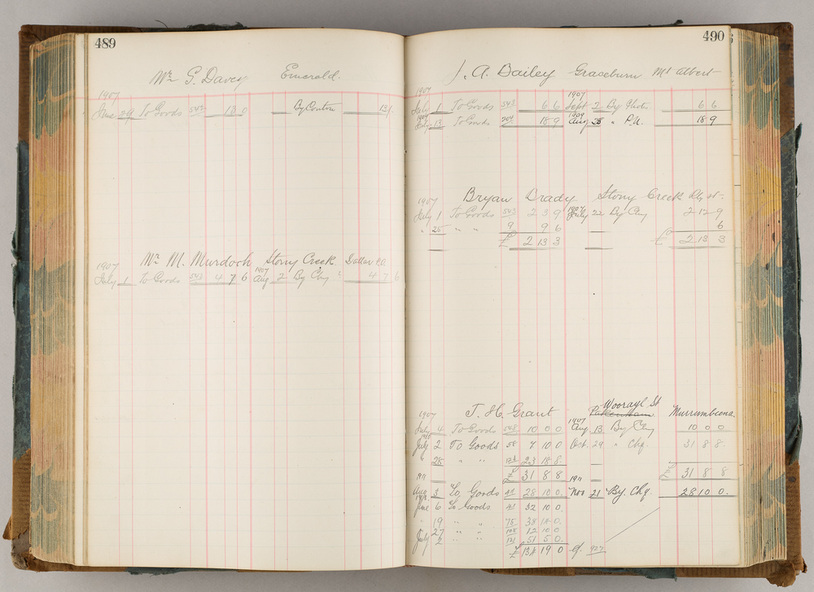 489
Mr G. Davey Emerald
1907
June 29 To Goods 18 0 By Contra 18/
1907 Mr M. Murdoch Stony Creek Dollar Rd
July 1 To Goods 543 4 7 6 1907 Aug 2 By Chq 4 7 6
490
J. A. Bailey Graceburn Mt Albert
1907
July 1 To Goods 543 6 6 1907 Sept 2 By 6 6
1907 July 13 To Goods 18 9 1907 Aug 28 " P.N. 18 9
1907 Bryan Brady Stony Creek
July 1 To Goods 543 2 3 9 1907 July 22 By Chq 2 12 9
" 25 " " 9 9 6 6
£ 2 13 3 £ 2 13 3
Woorayl St
1907 T. H. Grant Pakenham Murrumbeena
July 4 To Goods 548 10 0 0 1907 Aug 13 By Chq 10 0 0
July 2 To Goods 58 7 10 0 Oct 29 " Chq. 31 8 8
" 25 " " 23 18 8
£ 31 8 8 £ 31 8 8
Aug 2 To Goods 42 28 10 0 Nov 21 By Chq 28 10 0.
June 6 To Goods 41 32 10 0
" 19 " " 75 38 14 0.
" 27 " " 12 10 0
July 2 " " 51 5 0.
£ 134 19 0 cf. 907